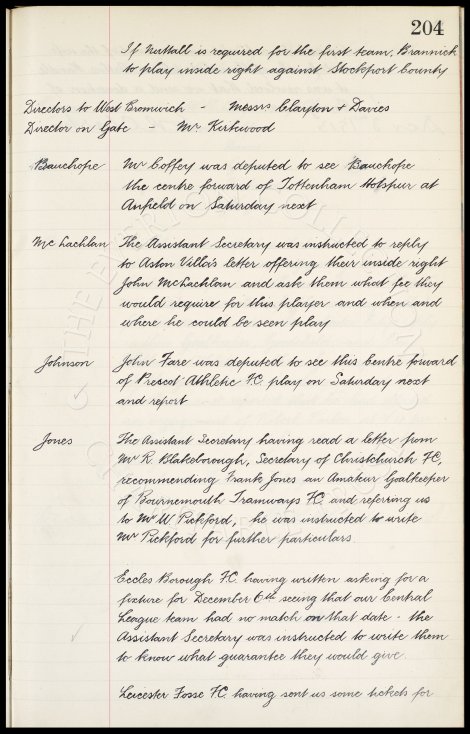 204
If Nuttall is required for the first team, Brannick
to play inside right against Stockport County
Directors to West Bromwich - Messrs Clayton & Davies
Director on Gate - Mr Kirkwood
Bauchope Mr Coffey was deputed to see Bauchope
the centre forward of Tottenham Hotspur at
Anfield on Saturday next
McLachlan The Assistant Secretary was instructed to reply
to Aston Villa's letter offering their inside right
John McLachlan and ask them what fee they
would require for this player and when and
where he could be seen play
Johnson John Fare was deputed to see this centre forward
of Prescot Athletic F.C. play on Saturday next
and report
Jones The Assistant Secretary having read a letter from
Mr R. Blakeborough, Secretary of Christchurch F.C,
recommending Frank Jones an Amateur Goalkeeper
of Bournemouth Tramways F.C. and referring us
to Mr W. Pickford, he was instructed to write
Mr Pickford for further particulars.
Eccles Borough F.C. having written asking for a
fixture for December 6th seeing that our Central
League team had no match on that date - the
Assistant Secretary was instructed to write them
to know what guarantee they would give.
Leicester Fosse F.C. having sent us some tickets for